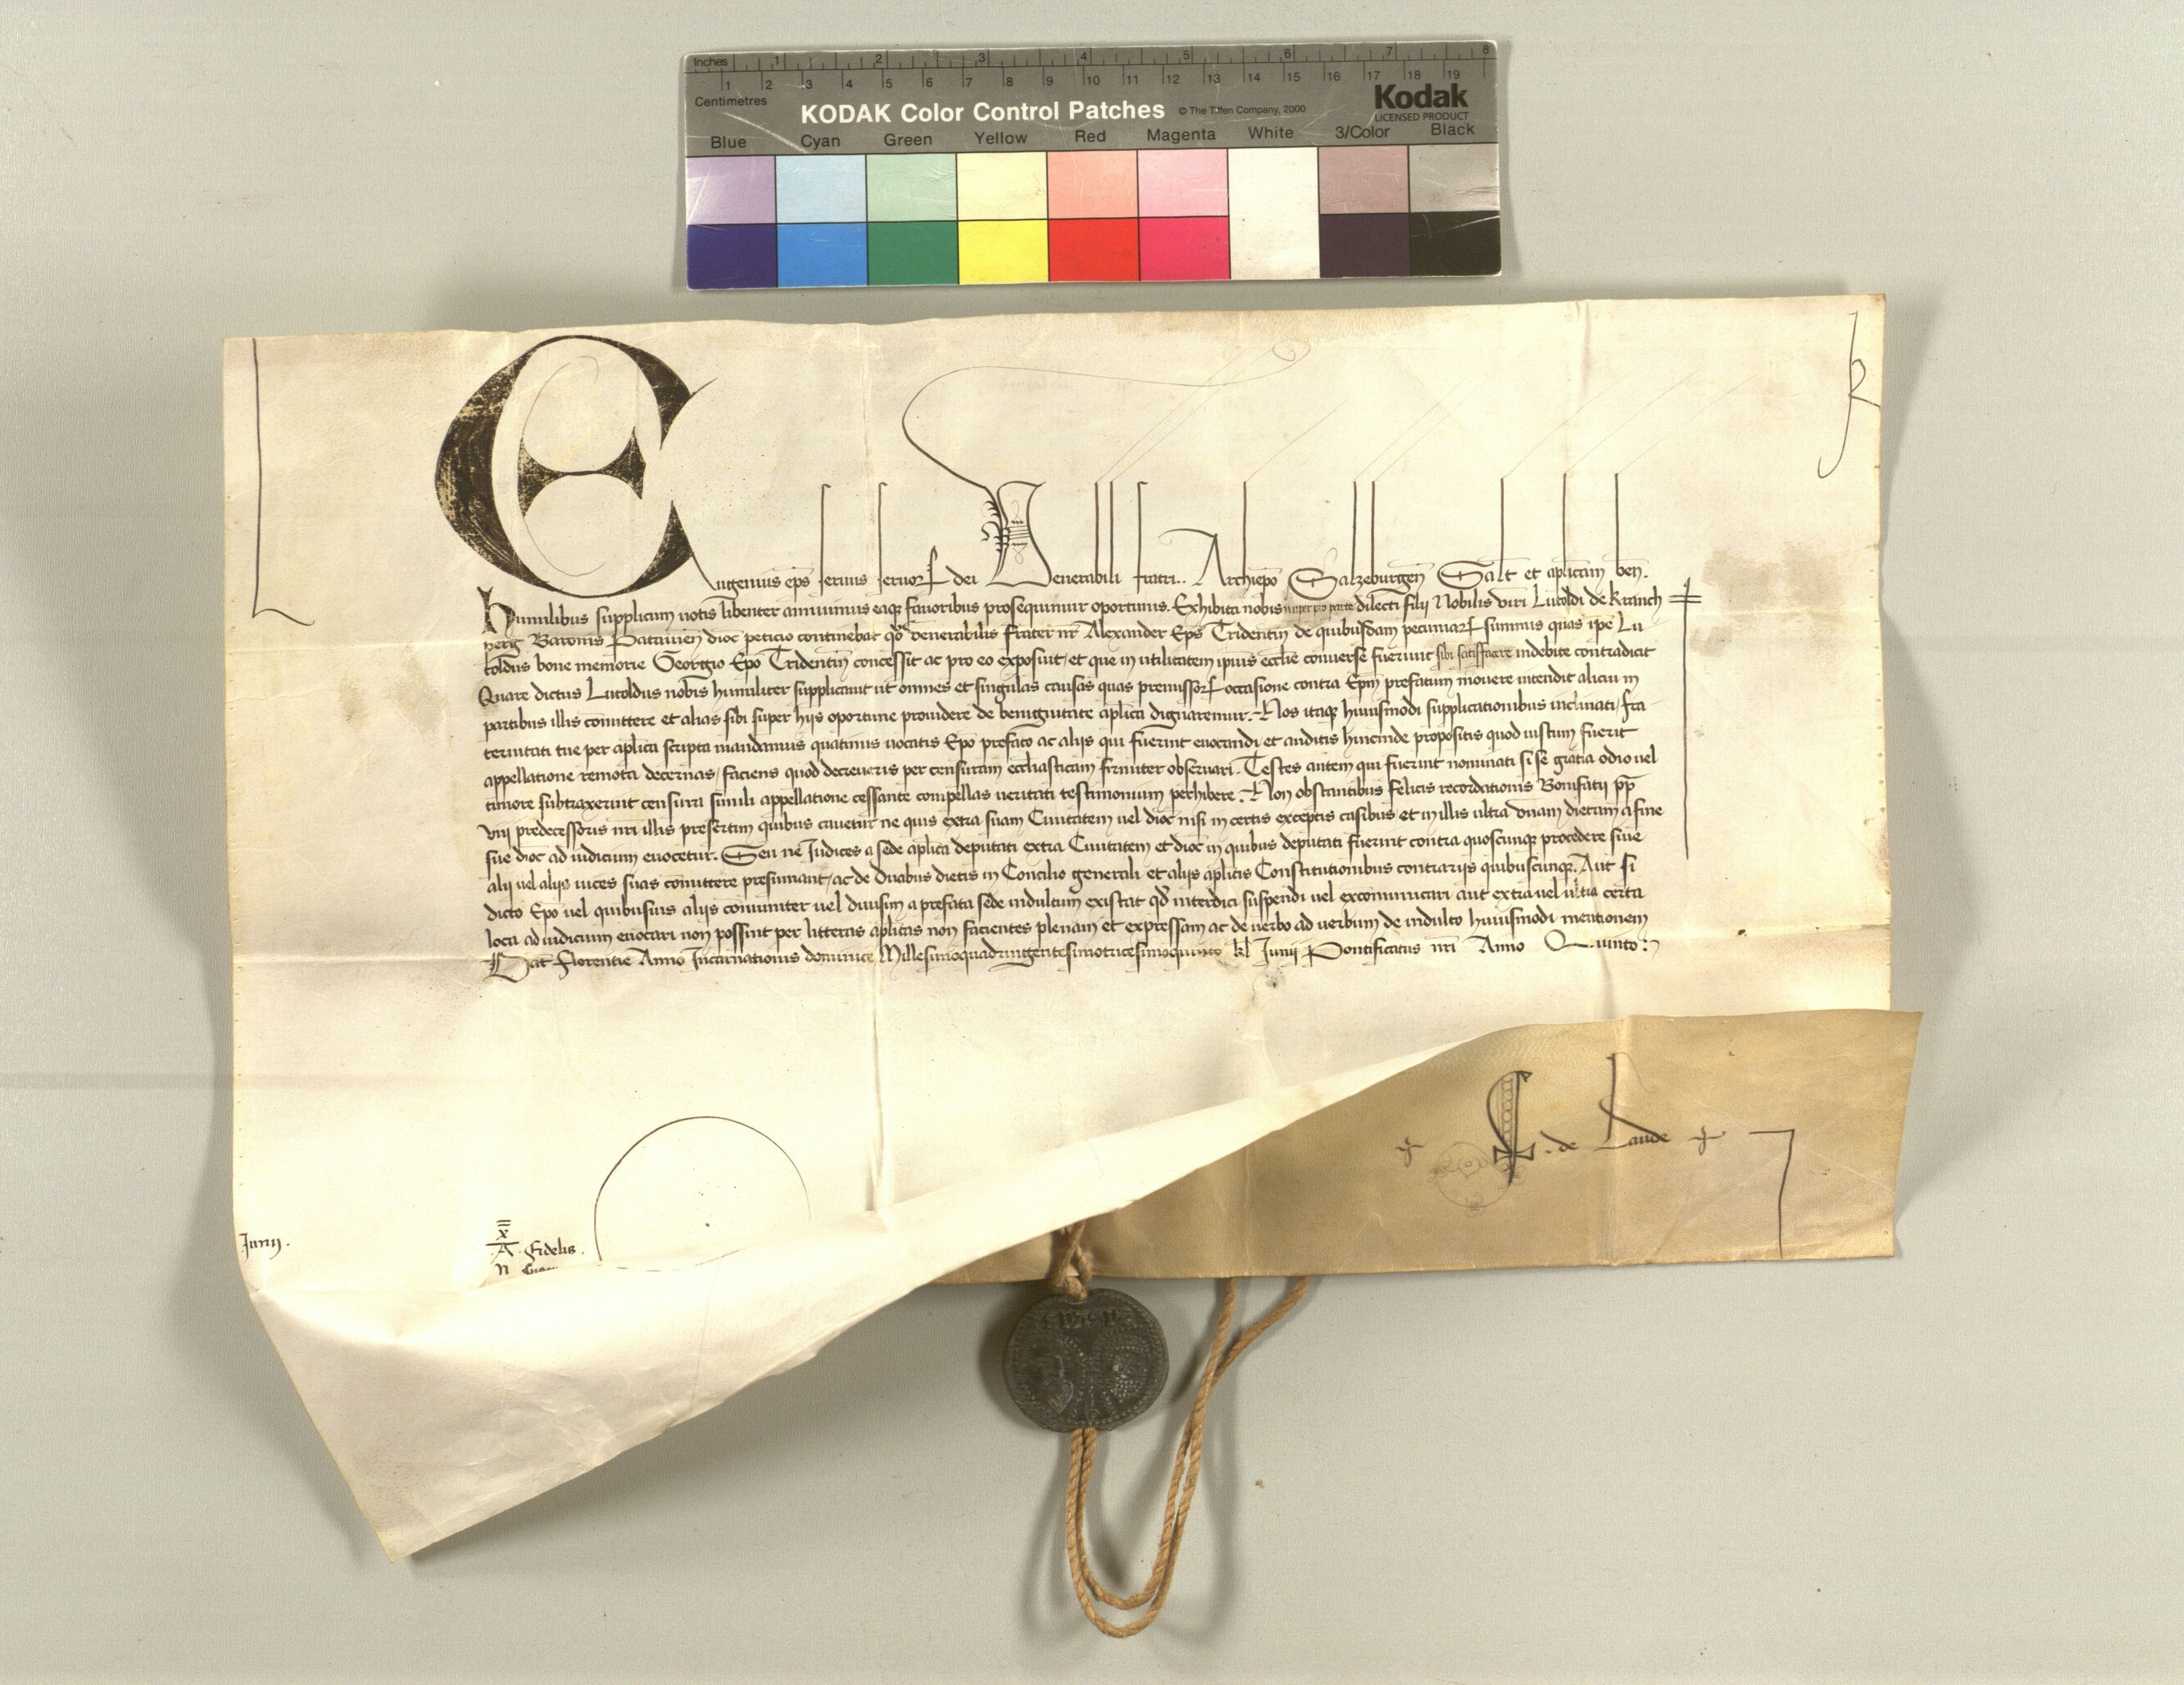 Inches 1 2 3 4 5 6 7 8
1 2 3 4 5 6 7 8 9 10 11 12 13 14 15 16 17 18 19
Centimetres
KODAK Color Control Patches © The Tiffen Company, 2000 Kodak
LICENSED PRODUCT
Blue Cyan Green Yellow Red Magenta White 3/Color Black
Eugenius ep̄s seruus seruoꝝ dei Venerabili fratri.. Archiep̄o Salzeburgen̄ Salt̄ et aplicam̄ ben̄.
Humilibus supplicum uotis libenter annuimus eaqꝫ fauoribus prosequimur oportunis. Exhibita nobis nuper pro parte dilecti filij Nobilis viri Lutoldi de Kranch
perg Baronis Patauien̄ dioc̄ peticio continebat qd̄ venerabilis frater nr̄ Alexander Ep̄s Tridentin̄ de quibusdam pecuniaꝝ summis quas ip̄e Lu
toldus bone memorie Georgio Ep̄o Tridentin̄ concessit ac pro eo exposuit, et que in utilitatem ipius eccl̄ie conuerse fuerunt sibi satisfacere indebite contradicit
Quare dictus Lutoldus nobis humiliter supplicauit ut omnes et singulas causas quas premissoꝝ occasione contra Ep̄m prefatum mouere intendit alicui in
partibus illis comittere et alias sibi super hijs oportune prouidere de benignitate aplica dignaremur. Nos itaqꝫ huiusmodi supplicationibus inclinati, fra
ternitati tue per aplica scripta mandamus quatinus uocatis Ep̄o prefato ac alijs qui fuerint euocandi et auditis hincinde propositis quod iustum fuerit
appellatione remota decernas, faciens quod decreueris per censuram eccl̄iasticam firmiter obseruari. Testes autem qui fuerint nominati si se gratia odio uel
timore subtraxerint censura simili appellatione cessante compellas ueritati testimonium perhibere. Non obstantibus felicis recordationis Bonifatij pp̄
viij predecessoris nr̄i illis presertim quibus cauetur ne quis extra suam Ciuitatem uel dioc̄ nisi in certis exceptis casibus et in illis ultra vnam dietam a fine
sue dioc̄ ad iudicium euocetur. Seu ne Iudices a sede aplica deputati extra Ciuitatem et dioc̄ in quibus deputati fuerint contra quoscunqꝫ procedere siue
alij uel alijs uices suas comittere presumant, ac de duabus dietis in Concilio generali et alijs aplicis Constitutionibus contrarijs quibuscunqꝫ. Aut si
dicto Ep̄o uel quibusuis alijs comuniter uel diuisim a prefata sede indultum existat qd̄ interdici suspendi uel excomunicari aut extra uel ultra certa
loca ad iudicium euocari non possint per litteras aplicas non facientes plenam et expressam ac de uerbo ad uerbum de indulto huiusmodi mentionem
Dat̄ Florentie Anno Incarnationis dominice Millesimoquadringentesimotricesimoquinto kl̄ Junij Pontificatus nr̄i Anno Quinto :
de Laude
Junij.
x
A. Fidelis.
N